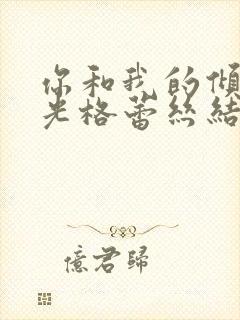 你和我的傾
光格蕾絲結
憶君歸